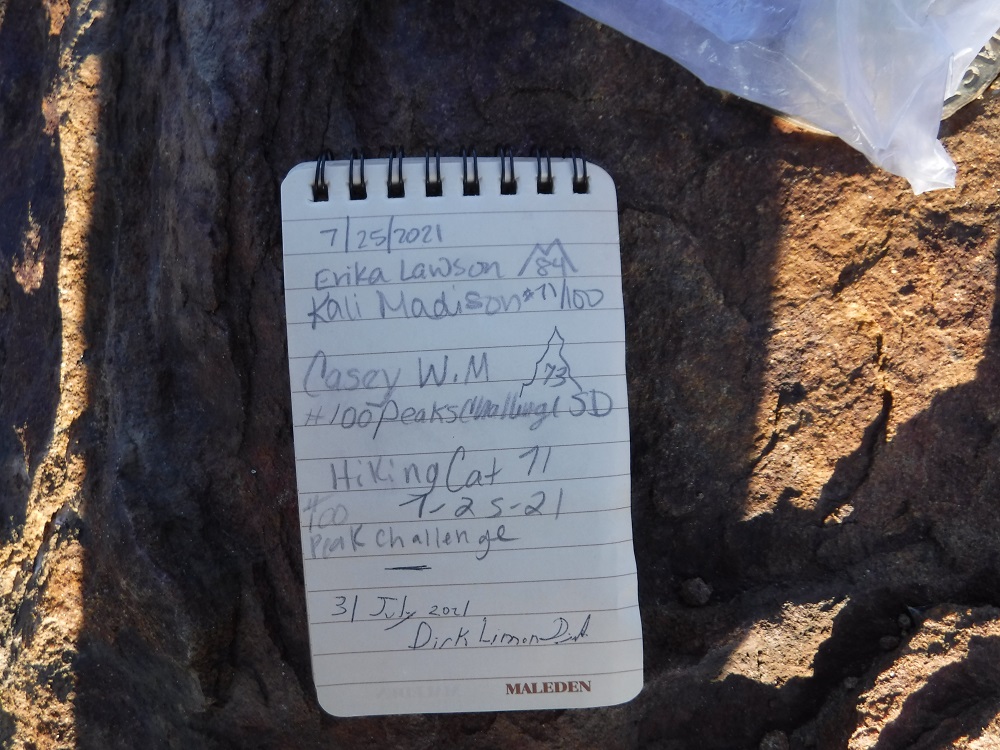 7/25/2021
Erika Lawson 84
Kali Madison #71/100
Casey W.M 73
#100PeaksChallenge SD
Hiking Cat 71
#100 7-25-21
Peak Challenge
31 July 2021
Dirk Limon
MALEDEN